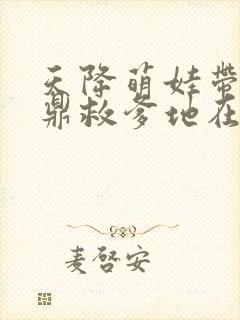 天降萌娃带
鼎救爹地在
麦啓安